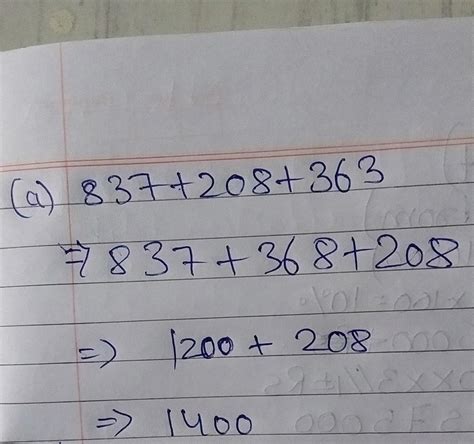 (a) 837+208+363
⇒ 837+368+208
⇒ 1200+ 208
⇒ 1400